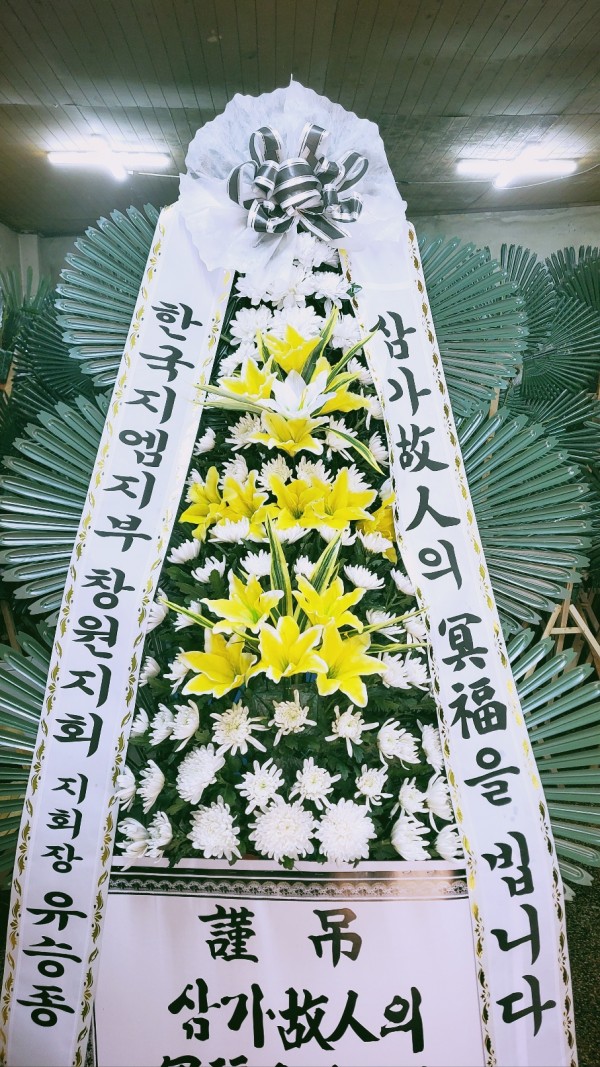 한국지엠지부 창원지회 지회장 유승종
삼가故人의 冥福을 빕니다
謹 弔
삼가故人의